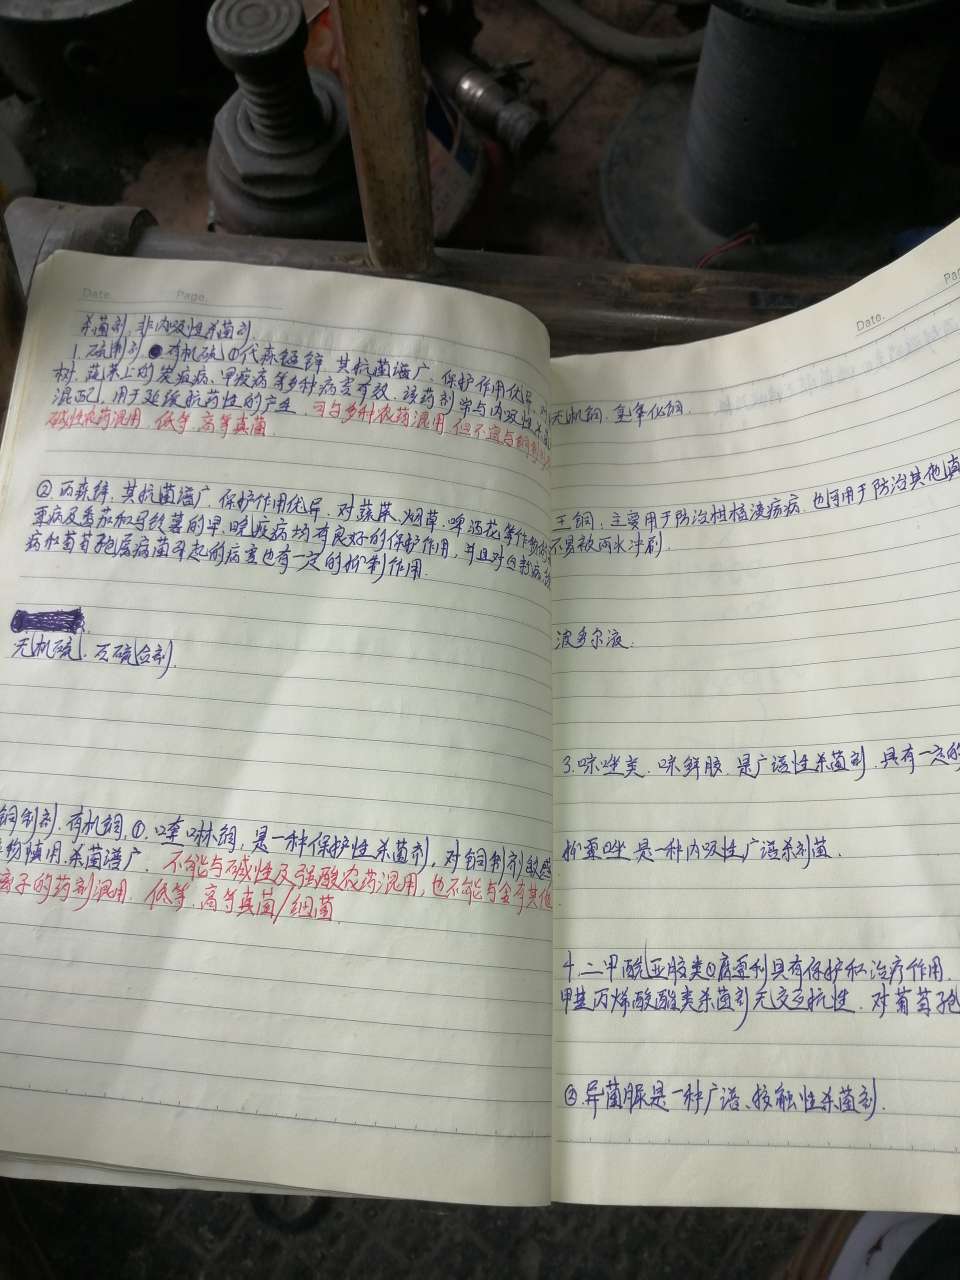 Date. Page.
杀菌剂,非内吸性杀菌剂.
1.硫制剂 有机硫①代森锰锌 其抗菌谱广、保护作用优异,对
树,蔬菜上的炭疽病、早疫病等多种病害有效,该药剂常与内吸性杀菌
混配,用于延缓抗药性的产生 可与多种农药混用,但不宜与铜制剂
碱性农药混用,低等,高等真菌
②.丙森锌.其抗菌谱广.保护作用优异.对蔬菜.烟草.啤酒花等作物的
霜病及番茄和马铃薯的早.晚疫病均有良好的保护作用,并且对白粉病
病和葡萄孢属病菌引起的病害也有一定的抑制作用.
无机硫,石硫合剂.
铜制剂.有机铜,①.喹啉铜,是一种保护性杀菌剂,对铜制剂敏感
物慎用.杀菌谱广,不能与碱性及强酸农药混用,也不能与含有其他
离子的药剂混用.低等.高等真菌/细菌
Date. Pa
无机铜.氢氧化铜.
王铜,主要用于防治柑桔溃疡病,也可用于防治其他真
不易被雨水冲刷.
波多尔液:
3.咪唑类.咪鲜胺.是广谱性杀菌剂.具有一定的
抑霉唑是一种内吸性,广谱杀剂菌.
4.二甲酰亚胺类①腐霉利具有保护和治疗作用.
甲基丙烯酸酯类杀菌剂无交互抗性.对葡萄孢
②.异菌脲是一种广谱、接触性杀菌剂.